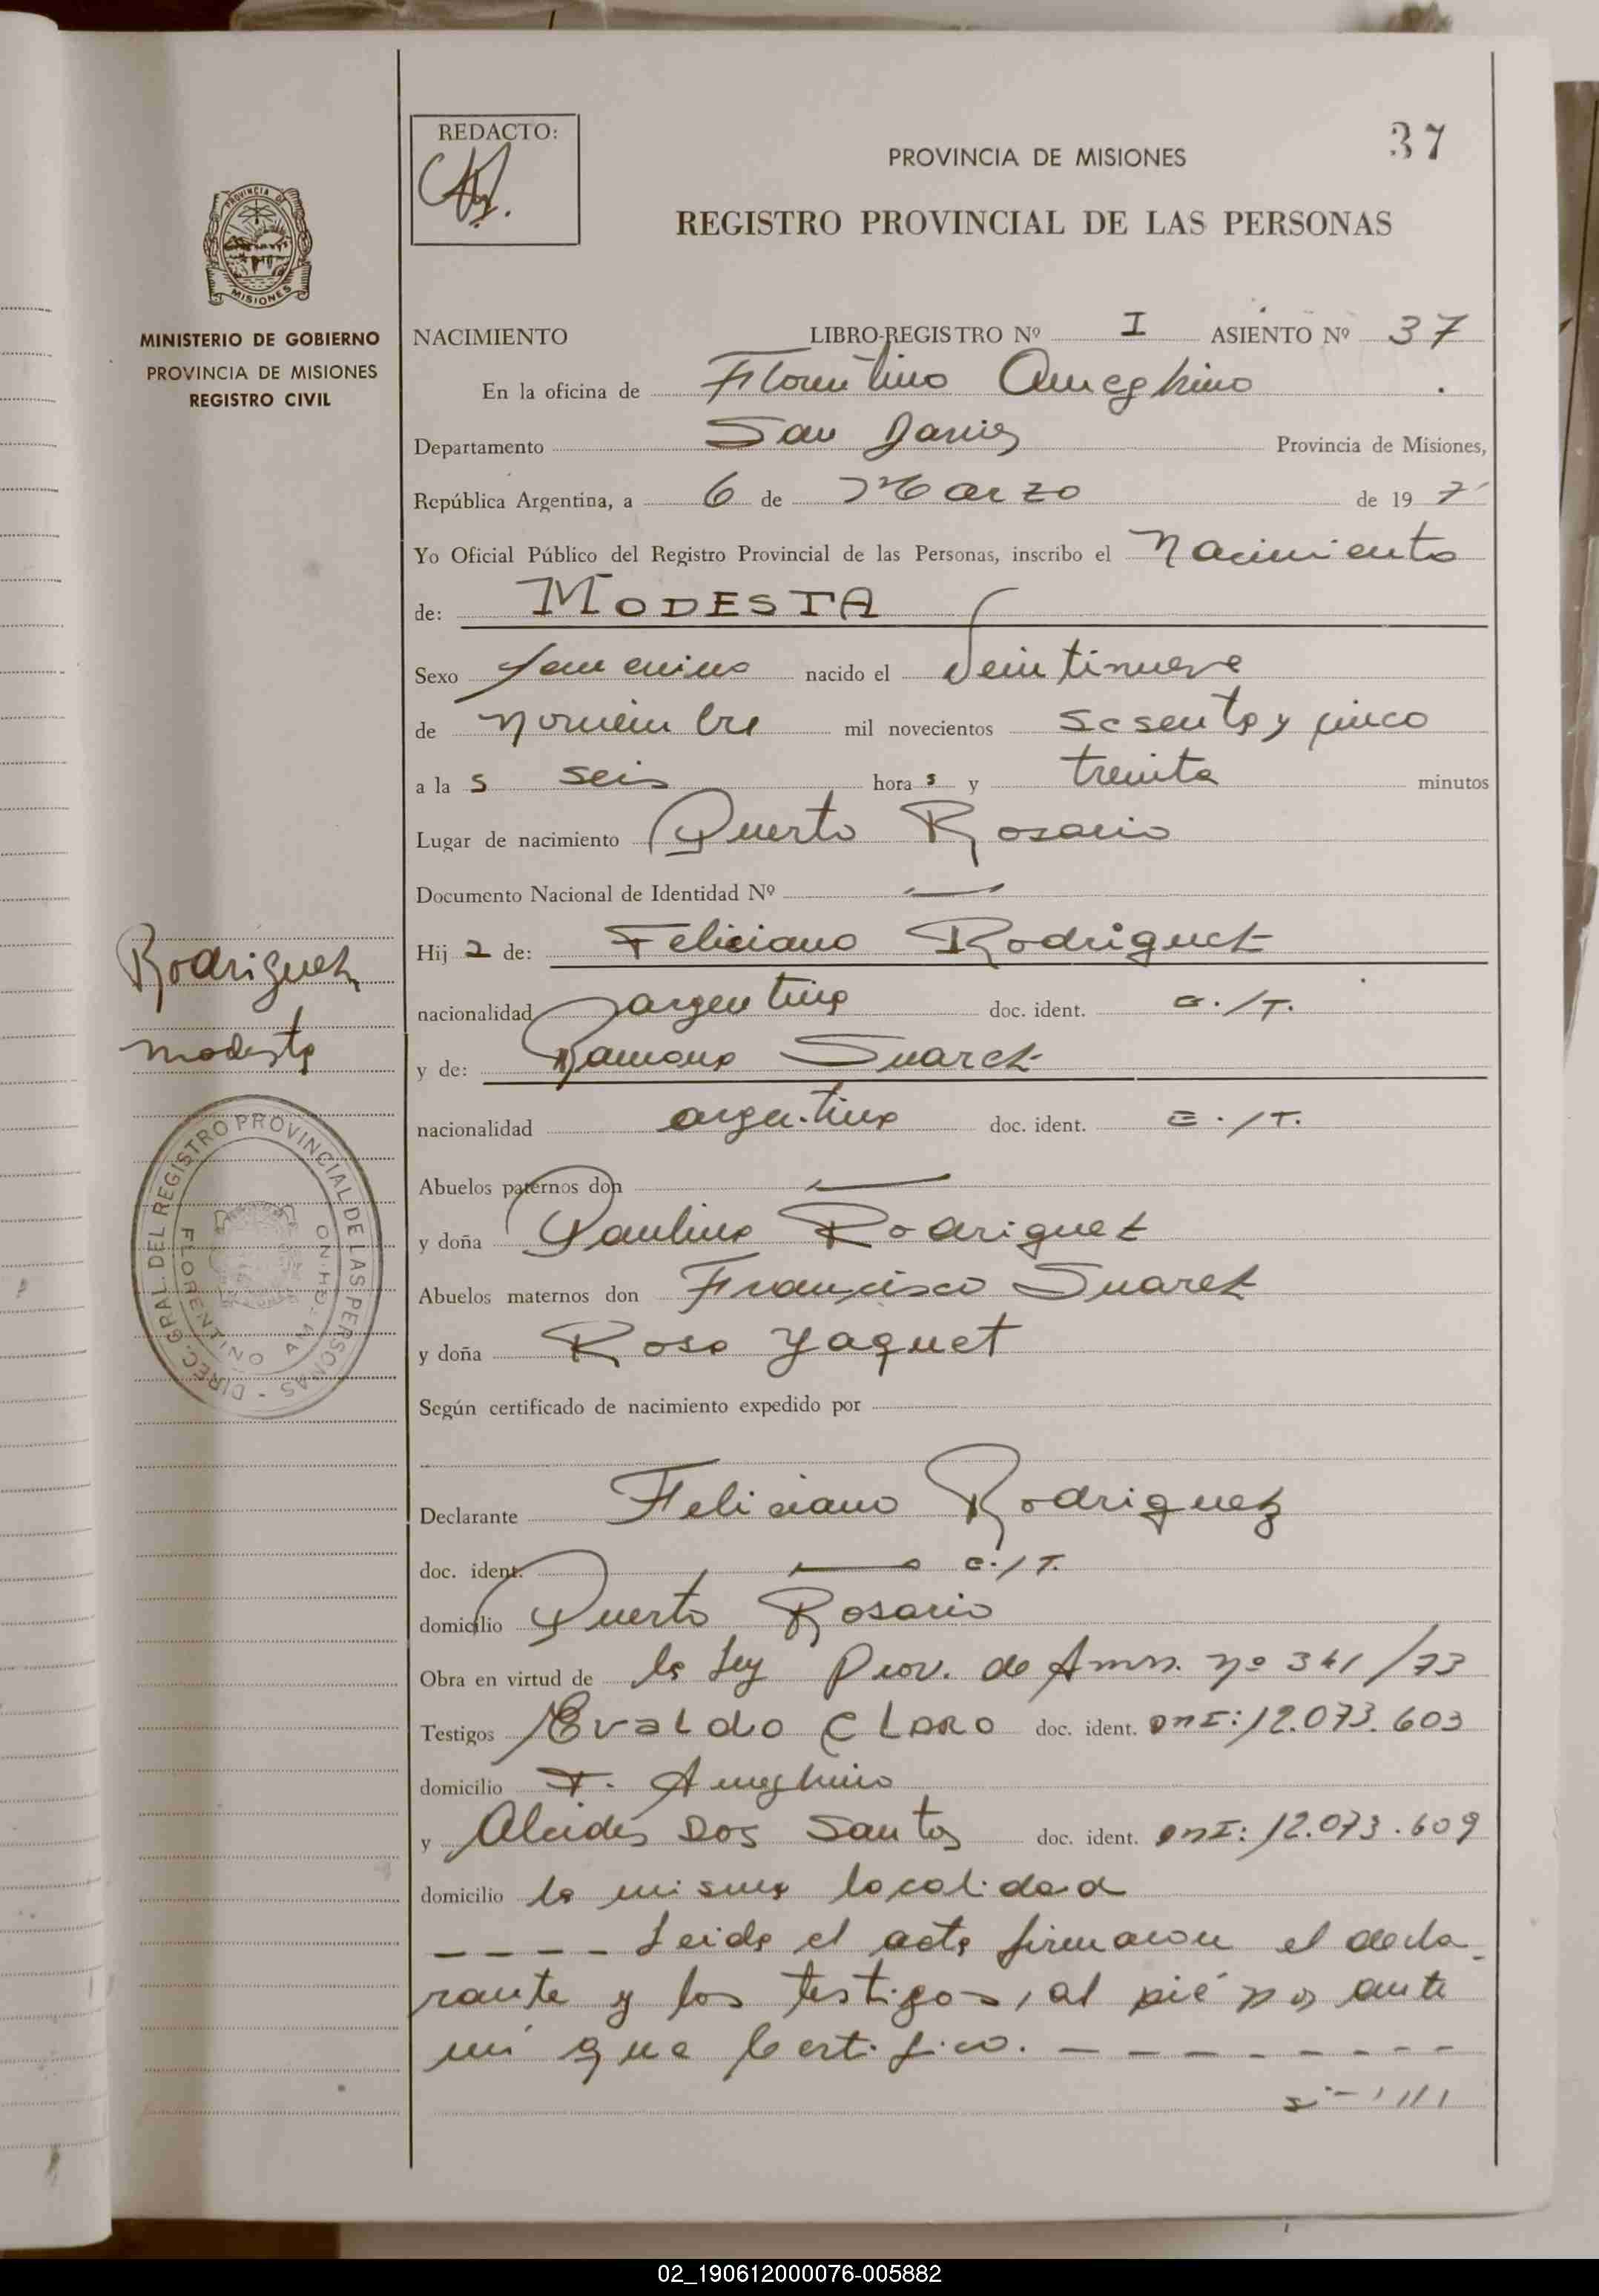 37
REDACTO:
PROVINCIA DE MISIONES
REGISTRO PROVINCIAL DE LAS PERSONAS
PROVINCIA DE
MISIONES
MINISTERIO DE GOBIERNO
PROVINCIA DE MISIONES
REGISTRO CIVIL
NACIMIENTO LIBRO-REGISTRO Nº I ASIENTO Nº 37
En la oficina de Florentino Ameghino
Departamento San Javier Provincia de Misiones,
República Argentina, a 6 de Marzo de 19 7
Yo Oficial Público del Registro Provincial de las Personas, inscribo el Nacimiento
de: MODESTA
Sexo femenino nacido el Veintinueve
de Noviembre mil novecientos sesenta y cinco
a la s seis hora s y treinta minutos
Lugar de nacimiento Puerto Rosario
Documento Nacional de Identidad Nº —
Hij a de: Feliciano Rodriguez
nacionalidad argentina doc. ident. C./T.
y de: Ramona Suarez
nacionalidad argentina doc. ident. C./T.
Rodriguez
Modesta
DIREC. GRAL. DEL REGISTRO PROVINCIAL DE LAS PERSONAS -
FLORENTINO AMEGHINO
Abuelos paternos don —
y doña Paulina Rodriguez
Abuelos maternos don Francisco Suarez
y doña Rosa Yaquet
Según certificado de nacimiento expedido por
Declarante Feliciano Rodriguez
doc. ident. — C./T.
domicilio Puerto Rosario
Obra en virtud de la Ley Prov. de Amn. Nº 341/73
Testigos Evaldo Claro doc. ident. DNI: 12.073.603
domicilio F. Ameghino
y Alcides Dos Santos doc. ident. DNI: 12.073.609
domicilio la misma localidad
---- Leida el acta firmaron el decla-
rante y los testigos, al pié por ante
mí que Certifico. --------
02_190612000076-005882